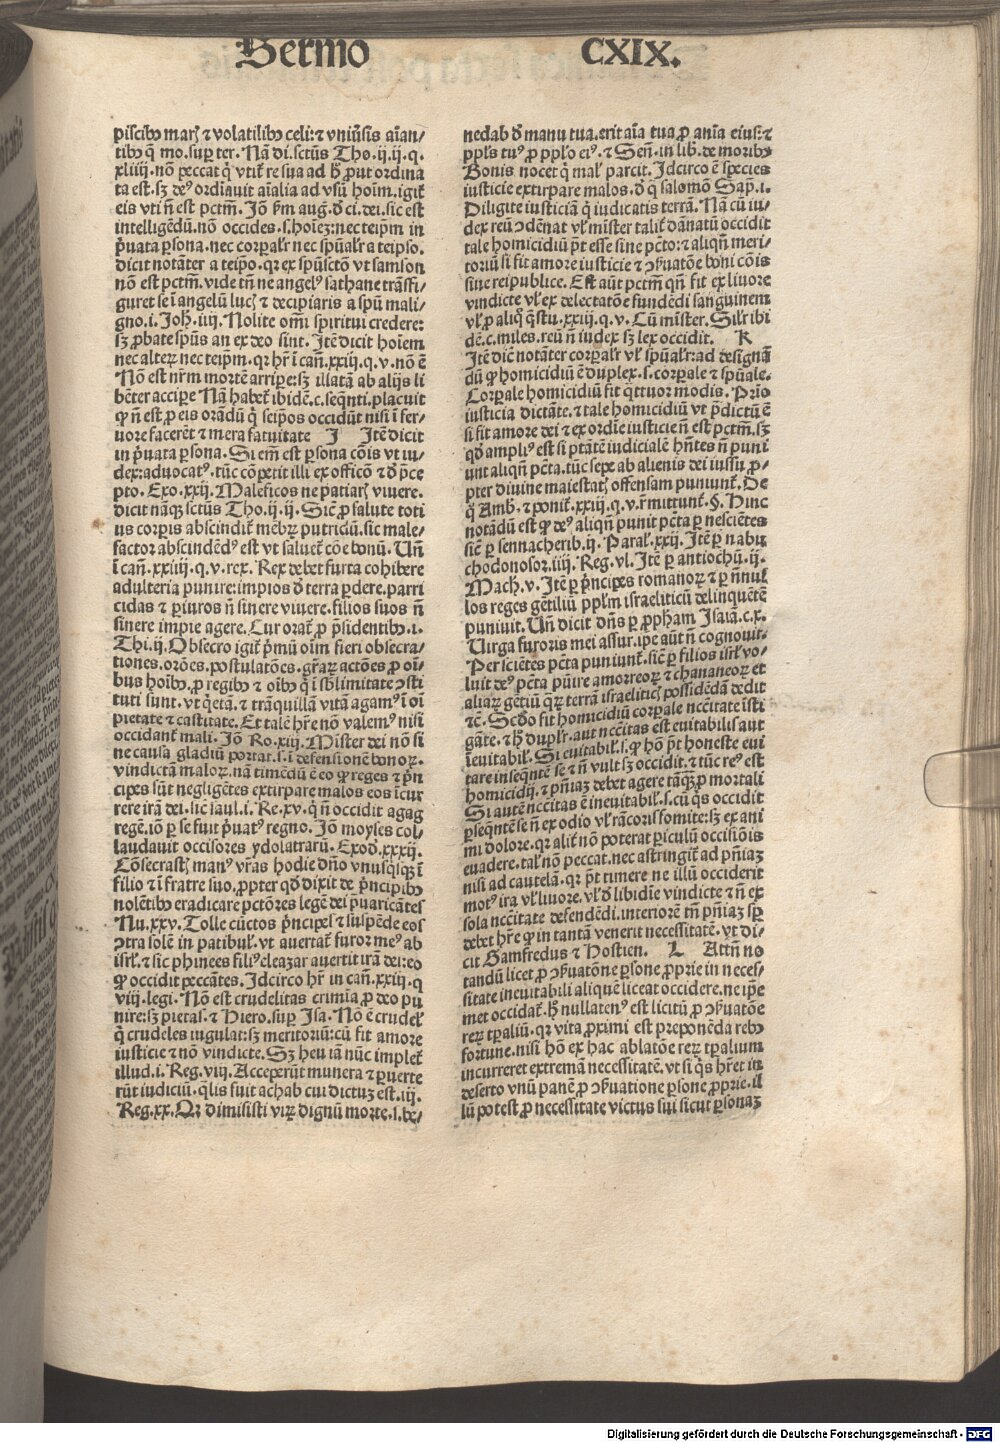 Sermo CXIX.
piscibꝰ marꝭ ⁊ volatilibꝰ celi: ⁊ vniũsis aĩan/
tibꝰ q̃ mo. suꝑ ter. Nã di. sctũs Tho. ij. ij. q.
xliiij. nõ peccat qͥ vtit᷑ re sua ad ɧ ꝓut ordina
ta est. sꝫ deꝰ ordinauit aĩalia ad vsũ hoĩm. igit᷑
eis vti ñ est pctm̃. Jõ ẜm aug. đ ci. dei. sic est
intelligẽdũ. nõ occides. s. hoĩeꝫ: nec teipm̃ in
p̃uata ꝑsona. nec corꝑalr̃ nec spũalr̃ a teipso.
dicit notãter a teipo. qꝛ ex spũsctõ vt samson
nõ est pctm̃. vide tñ ne angelꝰ sathane trãsfi/
guret se ĩ angelũ lucꝭ ⁊ decipiaris a spũ mali/
gno. i. Joh. iiij. Nolite om̃i spiritui credere:
sꝫ ꝓbate spũs an ex deo sint. Jtẽ dicit hoĩem
nec alteꝝ nec teipm̃. qꝛ hr̃ ĩ cañ. xxiij. q. v. nõ ẽ
Nõ est nr̃m mortẽ arripe: sꝫ illatã ab alijs li
bẽter accipe Nã habet᷑ ibidẽ. c. seq̃nti. placuit
ꝙ ñ est ꝓ eis orãdũ qͥ seipõs occidũt nisi ĩ fer/
uore facerẽt ⁊ mera fatuitate J Jtẽ dicit
in p̃uata ꝑsona. Si em̃ est ꝑsona cõis vt iu/
dex: aduocatꝰ. tũc cõpetit illi ex officõ ⁊ đ p̃ce
pto. Exo. xxij. Maleficos ne patiarꝭ viuere.
dicit nãqꝫ sctũs Tho. ij. ij. Sic̃ ꝓ salute toti
us corpis abscindit᷑ mẽbꝝ putridũ. sic male/
factor abscindẽdꝰ est vt saluet᷑ cõe bonũ. Uñ
ĩ cañ. xxiiij. q. v. rex. Rex debet furta cohibere
adulteria punire: impios đ terra ꝑdere. parri
cidas ⁊ ꝑiuros ñ sinere viuere. filios suos ñ
sinere impie agere. Cur orat᷑ ꝓ p̃sidentibꝰ. i.
Thi. ij. Obsecro igit᷑ p̃mũ oĩm fieri obsecra/
tiones. orões. postulatões. gr̃aꝝ actões ꝓ oĩ/
bus hoĩbꝰ. ꝓ regibꝰ ⁊ oĩbꝰ q̃ ĩ sb̃limitate ↄsti
tuti sunt. vt qͥetã. ⁊ trãquillã vitã agamꝰ ĩ oĩ
pietate ⁊ castitate. Et talẽ hr̃e nõ valemꝰ nisi
occidant᷑ mali. Jõ Ro. xiij. Mĩster dei nõ si
ne causa gladiũ portat. s. ĩ defensionẽ bonoꝝ.
vindictã maloꝝ. nã timẽdũ ẽ eo ꝙ reges ⁊ p̃n
cipes sũt negligẽtes extirpare malos eos ĩcur
rere irã dei. sic saul. i. Re. xv. qͥ ñ occidit agag
regẽ. iõ ꝑ se fuit p̃uatꝰ regno. Jõ moyses col/
laudauit occisores ydolatrarũ. Exod. xxxij.
Cõsecrastꝭ manꝰ vr̃as hodie dño vnusqͥsqꝫ ĩ
filio ⁊ ĩ fratre suo. ꝓpter qđ dixit de p̃ncipibꝰ
nolẽtibꝰ eradicare pctõres legẽ dei p̃uaricãtes
Nu. xxv. Tolle cũctos p̃ncipes ⁊ suspẽde eos
ↄtra solẽ in patibul̛. vt auertat᷑ furor meꝰ ab
isrl̛. ⁊ sic phinees filiꝰ eleazar auertit irã dei: eo
ꝙ occidit peccãtes. Jdcirco hr̃ in cañ. xxiij. q
viij. legi. Nõ est crudelitas crimĩa ꝓ deo pu
nire: sꝫ pietas. ⁊ Hiero. suꝑ Jsa. Nõ ẽ crudel̛
qͥ crudeles iugulat: sꝫ meritoriũ: cũ fit amore
iusticie ⁊ nõ vindicte. Sꝫ heu iã nũc implet᷑
illud. i. Reg. viij. Acceperũt munera ⁊ ꝑuerte
rũt iudiciũ. q̃lis fuit achab cui dictuꝫ est. iij.
Reg. xx. Qꝛ dimisisti viꝝ dignũ morte. s. be/
nedab đ manu tua. erit aĩa tua ꝓ anĩa eius: ⁊
ppl̃s tuꝰ ꝓ ppl̃o eiꝰ. ⁊ Señ. in lib. de moribꝰ
Bonis nocet qͥ mal̛ parcit. Jdcirco ẽ species
iusticie extirpare malos. đ q̃ salomõ Sap̃. i.
Diligite iusticiã qͥ iudicatis terrã. Nã cũ iu/
dex reũ ↄdẽnat vl̛ mĩster talit᷑ dãnatũ occidit
tale homicidiũ p̃t esse sine pctõ: ⁊ aliqñ meri/
toriũ si fit amore iusticie ⁊ ↄẜuatõe boni cõis
siue reipublice. Est aũt pctm̃ qñ fit ex liuore
vindicte vl̛ ex delectatõe fundẽdi sanguinem
vl̛ ꝓ aliqͦ q̃stu. xxiij. q. v. Cũ mĩster. Silr̃ ibi
dẽ. c. miles. reũ ñ iudex sꝫ lex occidit. K
Jtẽ dic̃ notãter corꝑalr̃ vl̛ spũalr̃: ad designã
dũ ꝙ homicidiũ ẽ duplex. s. corꝑale ⁊ spũale.
Corꝑale homicidiũ fit qͣttuor modis. Prĩo
iusticia dictãte. ⁊ tale homicidiũ vt p̃dictũ ẽ
si fit amore dei ⁊ ex ordĩe iusticie ñ est pctm̃. sꝫ
qđ ampliꝰ est si ptãtẽ iudicialẽ hñtes ñ puni
unt aliqñ pctã. tũc sepe ab alienis dei iussu ꝓ/
pter diuine maiestatꝭ offensam puniunt᷑. De
qͦ Amb. ⁊ ponit᷑. xxiij. q. v. r̃mittunt᷑. §. Hinc
notãdũ est ꝙ deꝰ aliqñ punit pctã ꝑ nesciẽtes
sic̃ ꝑ sennacherib. ij. Paral̛. xxij. Jtẽ ꝑ nabu
chodonosor. iiij. Reg. vl. Jtẽ ꝑ antiochũ. ij.
Macꝭ. v. Jtẽ ꝑ p̃ncipes romanoꝝ ⁊ ꝑ ñnul
los reges gẽtiliũ ppl̃m israeliticũ delinquẽtẽ
puniuit. Uñ dicit dñs ꝑ ꝓpham Jsaiã. c. x.
Uirga furoris mei assur. ipe aũt ñ cognouit.
Per sciẽtes pctã puniunt᷑. sic̃ ꝑ filios isrl̛ vo/
luit deꝰ pctã pũire amorreoꝝ ⁊ chananeoꝝ et
aliaꝝ gẽtiũ qͣꝝ terrã israelitꝭ possidẽdã dedit
⁊c̃. Scđo fit homicidiũ corꝑale nccĩtate isti
gãte. ⁊ ɧ duplr̃. aut nccĩtas est euitabilis aut
ĩeuitabil̛. Si euitabil̛. s. ꝙ hõ p̃t honeste eui
tare inseq̃ntẽ se ⁊ ñ vult sꝫ occidit. ⁊ tũc reꝰ est
homicidij. ⁊ pñiaꝫ debet agere tãqͣꝫ ꝓ mortali
Si autẽ nccĩtas ẽ ineuitabil̛. s. cũ qͥs occidit
ꝑseq̃ntẽ se ñ ex odio vl̛ rãcoris fomite: sꝫ ex ani
mi dolore. qꝛ alit᷑ nõ poterat ꝑiculũ occisiõis
euadere. tal̛ nõ peccat. nec astringit᷑ ad pñiaꝫ
nisi ad cautelã. qꝛ p̃t timere ne illũ occiderit
motꝰ ira vl̛ liuore. vl̛ đ libidĩe vindicte ⁊ ñ ex
sola nccĩtate defendẽdi. interiorẽ tñ pñiaꝫ sp̃
debet hr̃e ꝙ in tantã venerit necessitatẽ. vt di/
cit Gamfredus ⁊ Hostien. L Attñ no
tandũ licet ꝓ ↄẜuatõne ꝑsone ꝓprie in neces/
sitate ineuitabili aliquẽ liceat occidere. ne ipe
met occidat᷑. ɧ nullatenꝰ est licitũ ꝓ ↄẜuatõe
reꝝ tꝑaliũ. qꝛ vita ꝓximi est preponẽda rebꝰ
fortune. nisi hõ ex hac ablatõe reꝝ tꝑalium
incurreret extremã necessitatẽ. vt si qͥs hr̃et in
deserto vnũ panẽ ꝓ ↄẜuatione ꝑsone ꝓprie. il
lũ potest ꝓ necessitate victus sui sicut ꝑsonaꝫ
Digitalisierung gefördert durch die Deutsche Forschungsgemeinschaft - DFG